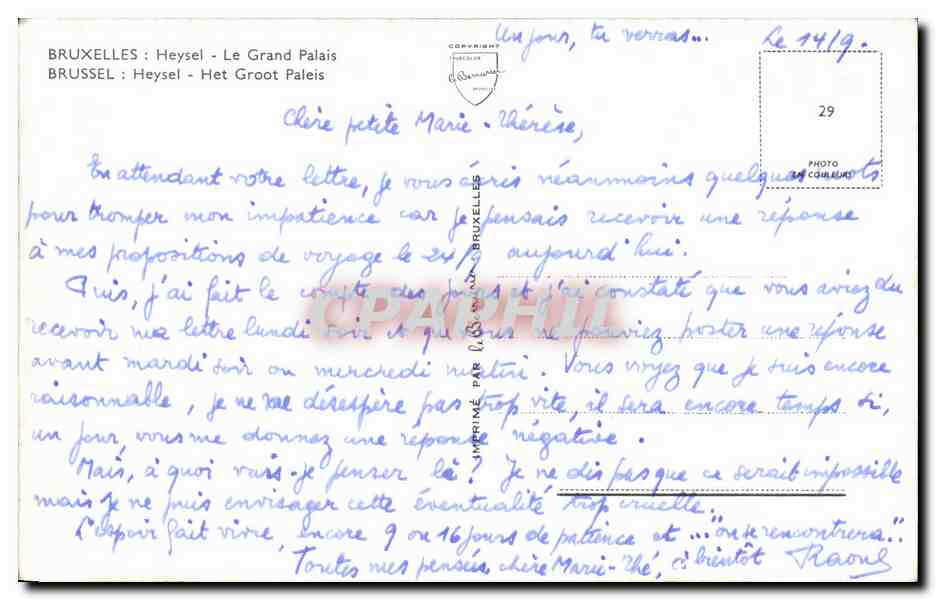 Un jour, tu verras...
Le 14/9.
BRUXELLES : Heysel - Le Grand Palais
BRUSSEL : Heysel - Het Groot Paleis
COPYRIGHT
29
PHOTO
EN COULEURS
Chère petite Marie-Thérèse,
En attendant votre lettre, je vous écris néanmoins quelques mots
pour tromper mon impatience car je pensais recevoir une réponse
à mes propositions de voyage le 24/9 aujourd'hui.
Puis, j'ai fait le compte des jours et j'ai constaté que vous aviez du
recevoir ma lettre lundi soir et que vous ne pouviez poster une réponse
avant mardi soir ou mercredi matin. Vous voyez que je suis encore
raisonnable, je ne me désespère pas trop vite, il sera encore temps si,
un jour, vous me donnez une réponse négative.
Mais, à quoi vais-je penser là ? Je ne dis pas que ce serait impossible
mais je ne puis envisager cette éventualité trop cruelle.
L'espoir fait vivre, encore 9 ou 16 jours de patience et ..."on se rencontrera".
Toutes mes pensées, chère Marie-Thé, à bientôt Raoul
IMPRIMÉ PAR BRUXELLES
CPAPHIL